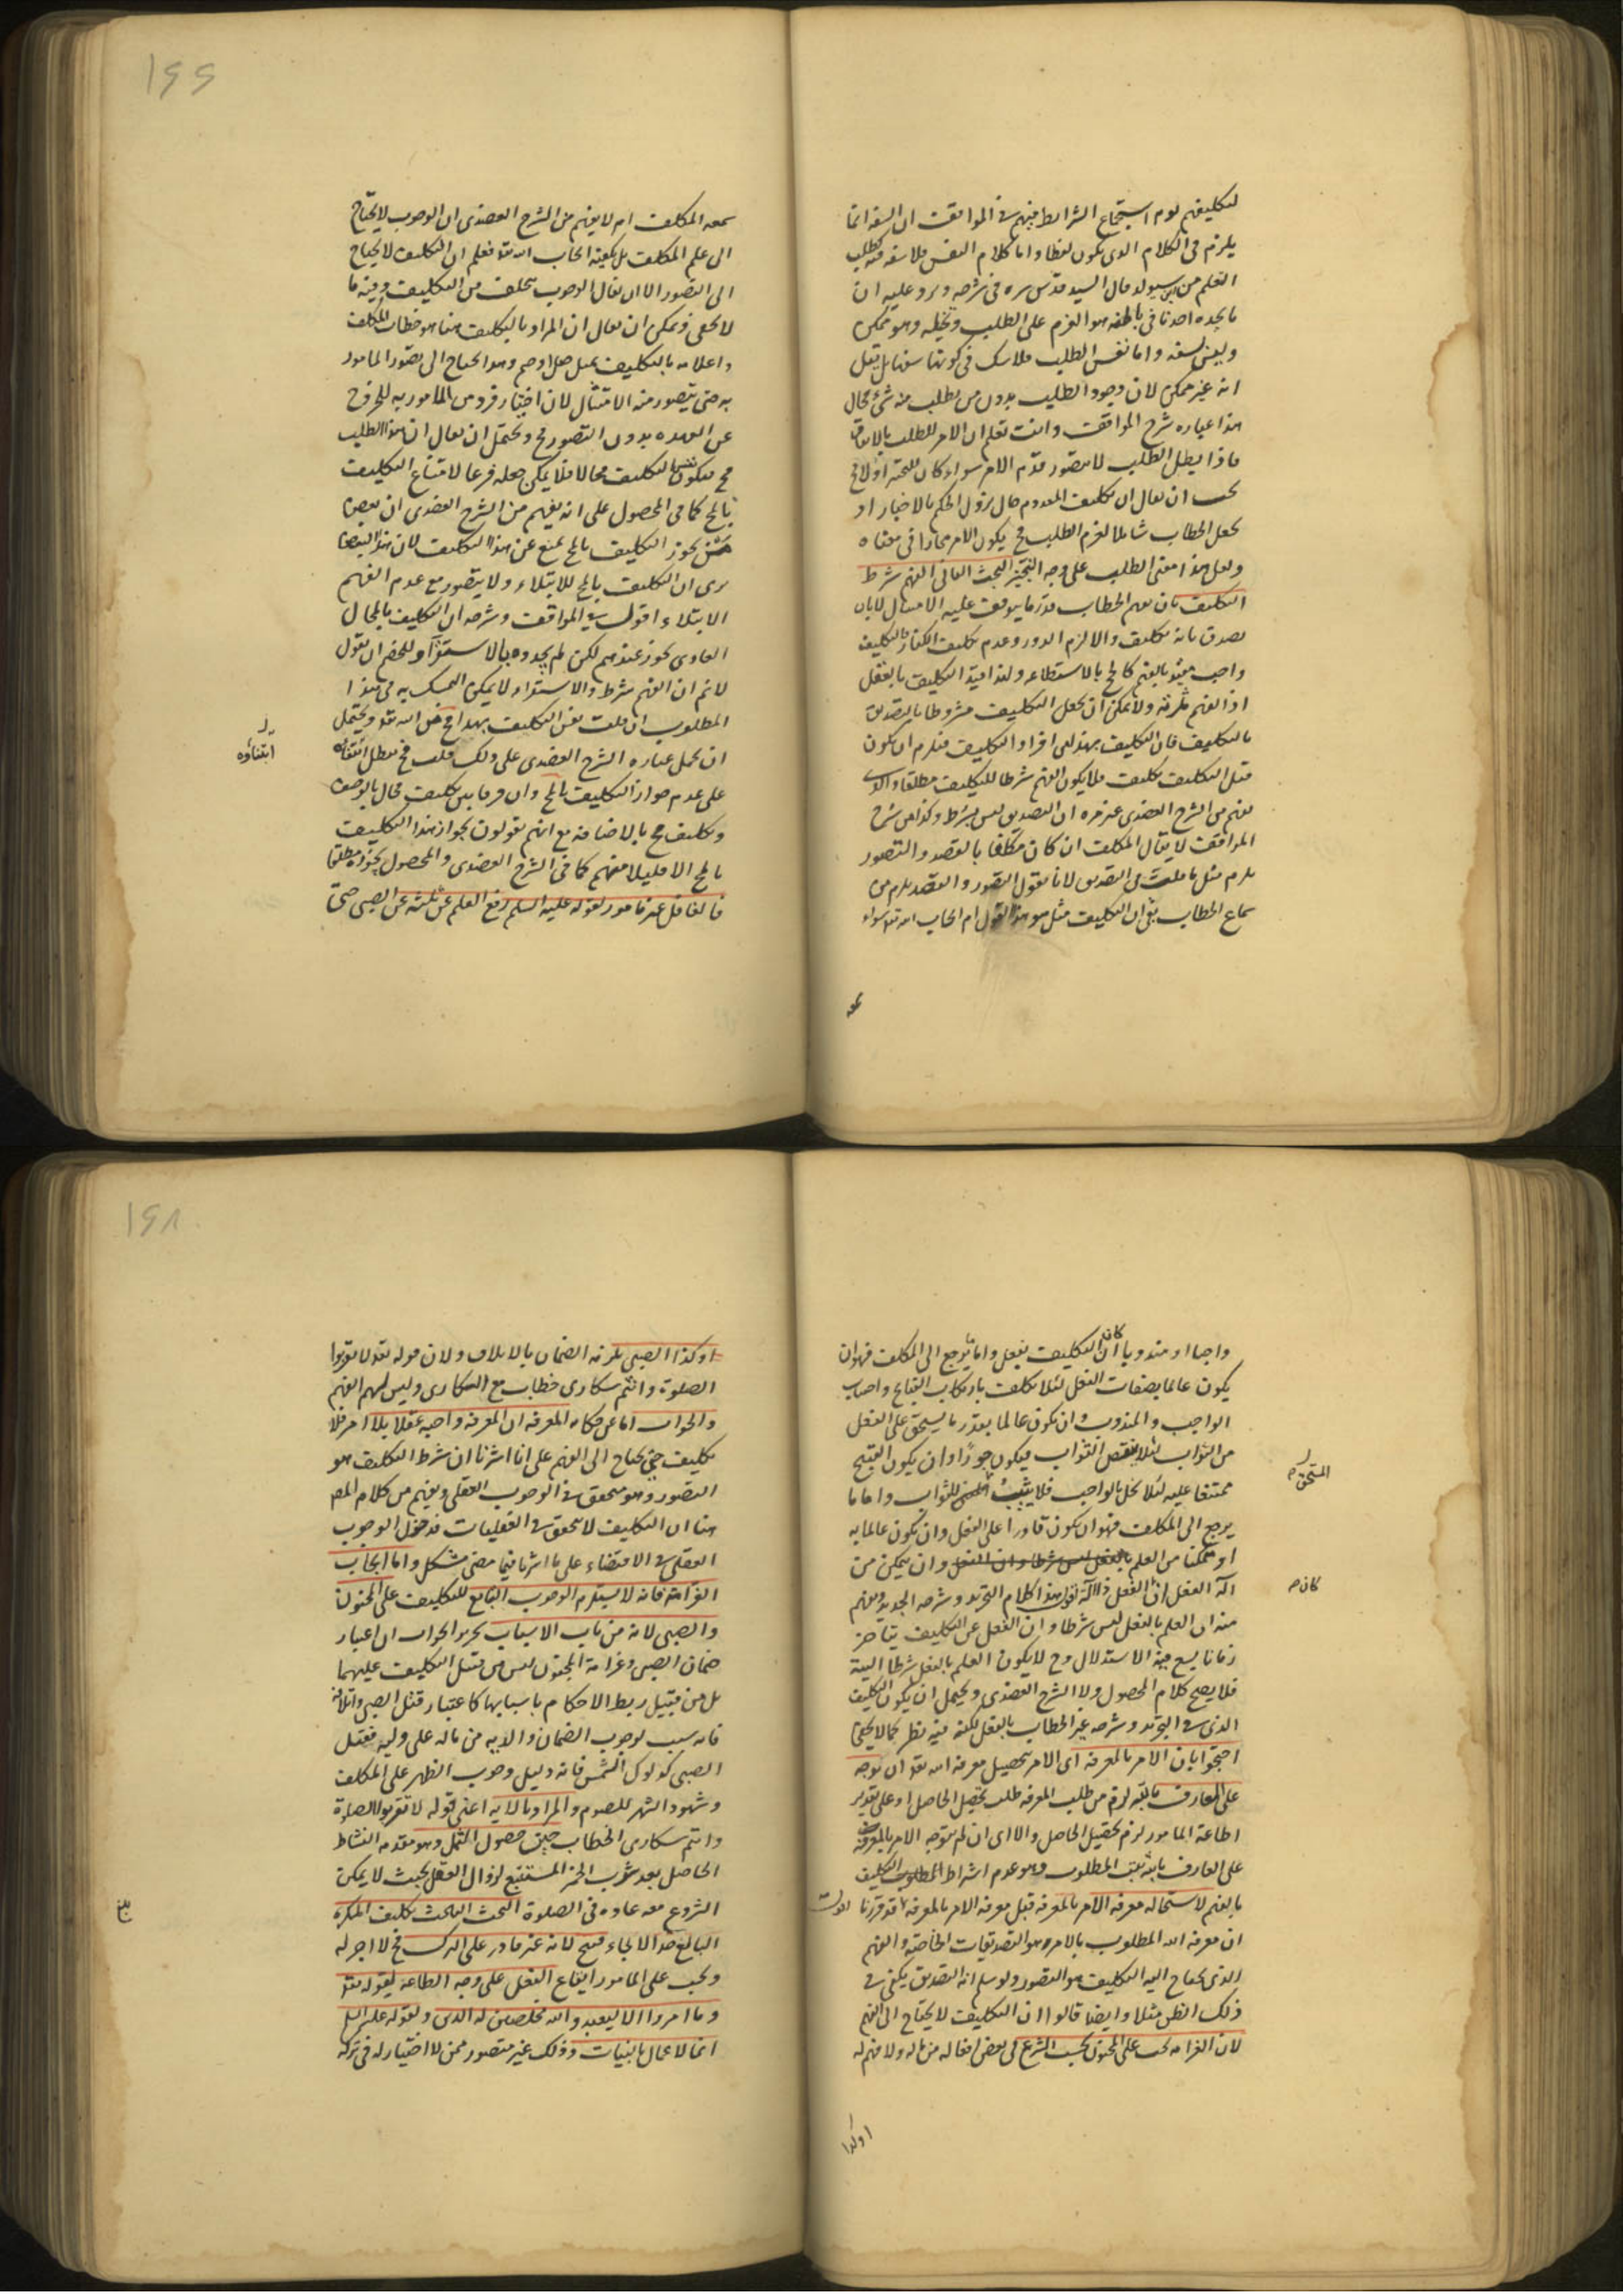 ۱۶۶
لتكليفهم يوم استجماع الشرايط فيهم في المواقف ان السفه انما
يلزم في الكلام الذي يكون لفظا واما كلام النفس فلا سفه فيه كطلب
التعلم من ابن سيولد قال السيد قدس سره في شرحه ويرد عليه ان
ما يجده احدنا في باطنه هو العزم على الطلب وتخيله وهو ممكن
وليس بسفه واما نفس الطلب فلا شك في كونها سفها بل قيل
انه غير ممكن لان وجود الطلب بدون من يطلب منه شيء محال
هذا عبارة شرح المواقف وانت تعلم ان الامر للطلب بالاتفاق
فاذا بطل الطلب لا يتصور قدم الامر سواء كان للتنجيز اولا فح
يجب ان يقال ان تكليف المعدوم حال نزول الحكم بالاخبار او
يجعل الخطاب شاملا لعزم الطلب فح يكون الامر مجازا في معناه
ولعل هذا معنى الطلب على وجه التنجيز البحث الثاني الفهم شرط
التكليف بان يفهم الخطاب قدر ما يتوقف عليه الامتثال لا بان
يصدق بانه تكليف والا لزم الدور وعدم تكليف الكفار بالتكليف
واجب مقيد بالفهم كالحج بالاستطاعة ولذا قيد التكليف بالفعل
اذ الفهم ولا يمكن ان يجعل التكليف مشروطا بالتصديق
بالتكليف فان التكليف بهذا من افراد التكليف فيلزم ان يكون
قبل التكليف تكليف فلا يكون الفهم شرطا للتكليف مطلقا والذي
يفهم من الشرح العضدي وغيره ان التصديق ليس بشرط وكذا في شرح
المواقف لا يقال المكلف ان كان مكلفا بالقصد والتصور
يلزم مثل ما قلت في التصديق لانا نقول التصور والقصد يلزم من
سماع الخطاب بقي ان التكليف مثل هو هذا القول ام ايجاب الله تعالى سواء
سمعه
سمعه المكلف ام لا يفهم من الشرح العضدي ان الوجوب لا يحتاج
الى علم المكلف بل يكفيه ايجاب الله تعالى فعلم ان التكليف لا يحتاج
الى التصور الا ان يقال الوجوب يتخلف من التكليف وفيه ما
لا يخفى ويمكن ان يقال ان المراد بالتكليف هنا هو خطاب المكلف
واعلامه بالتكليف بمثل صل او صم وهو المحتاج الى تصور المامور
به حتى يتصور منه الامتثال لان اختيار فرد من المامور به للخروج
عن العهدة بدون التصور مح ويحتمل ان يقال ان هذا الطلب
مح فيكون نفس التكليف محالا فلا يمكن جعله فرعا لامتناع التكليف
بالمح كما في المحصول على انه يفهم من الشرح العضدي ان بعضا
ممن يجوز التكليف بالمح يمنع عن هذا التكليف لان هذا البعض
يرى ان التكليف بالمح للابتلاء ولا يتصور مع عدم الفهم
الابتلاء اقول في المواقف وشرحه ان التكليف بالمحال
العادي يجوز عندهم لكن لم يجدوه بالاستقراء وللخصم ان يقول
لا نم ان الفهم شرط والاستقراء لا يمكن التمسك به في هذا
المطلوب ان قلت نفس التكليف بهذا مح من الله تعالى ويحتمل
ان يحمل عبارة الشرح العضدي على ذلك قلت فح يبطل ابتناؤه
ابتناؤه
على عدم جواز التكليف بالمح وان فرقا بين تكليف محال بالوصف
وتكليف مح بالاضافة مع انهم يقولون بجواز هذا التكليف
بالمح الا قليلا منهم كما في الشرح العضدي والمحصول يجوزه مطلقا
فالغافل غير مامور لقوله عليه السلم رفع القلم عن ثلثة عن الصبي حتى
۱۶۸
واجبا او مندوبا ان كان التكليف بفعل واما ما يرجع الى المكلف فهو ان
يكون عالما بصفات الفعل لئلا يكلف بارتكاب القبايح واجتناب
الواجب والمندوب وان يكون عالما بقدر ما يستحق على الفعل
من الثواب لئلا ينقص الثواب فيكون جورا وان يكون القبيح
المستحق
ممتنعا عليه لئلا يخل بالواجب فلا يثيب للثواب واما ما
يرجع الى المكلف فهو ان يكون قادرا على الفعل وان يكون عالما به
او متمكنا من العلم بالفعل ليس شرطا وان الفعل وان يتمكن من
آلة الفعل ان كان الفعل ذا آلة اقول هذا كلام التجريد وشرحه الجديد ويفهم
كان
منه ان العلم بالفعل ليس شرطا وان الفعل عن التكليف يتاخر
زمانا يسع فيه الاستدلال وح لا يكون العلم بالفعل شرطا البتة
فلا يصح كلام المحصول ولا الشرح العضدي ويحتمل ان يكون التكليف
الذي في التجريد وشرحه غير الخطاب بالفعل لكنه فيه نظر كما لا يخفى
احتجوا بان الامر بالمعرفة اي الامر بتحصيل معرفة الله تعالى ان توجه
على العارف بالله لزم من طلب المعرفة طلب تحصيل الحاصل او على تقدير
اطاعة المامور لزم تحصيل الحاصل والا اي ان لم يتوجه الامر بالمعرفة
على العارف بالله ثبت المطلوب وهو عدم اشتراط التكليف
بالفهم لاستحالة معرفة الامر بالمعرفة قبل معرفة الامر بالمعرفة قد قررنا
ان معرفة الله المطلوب بالامر هو التصديقات الخاصة والفهم
الذي يحتاج اليه التكليف هو التصور ولو سلم انه التصديق يكفي في
ذلك الظن مثلا وايضا قالوا ان التكليف لا يحتاج الى الفهم
لان الغرامة تجب على المجنون بحسب الشرع في بعض افعاله من ماله ولا فهم له
او كذا
او كذا الصبي يلزمه الضمان بالاتلاف ولان قوله تعالى لا تقربوا
الصلوة وانتم سكارى خطاب مع السكارى وليس لهم الفهم
والجواب اما عن حكاية المعرفة ان المعرفة واجبة عقلا بلا امر فلا
تكليف حتى يحتاج الى الفهم على انا اشرنا ان شرط التكليف هو
التصور وهو متحقق في الوجوب العقلي ويفهم من كلام المص
هنا ان التكليف لا يتحقق في العقليات فدخول الوجوب
العقلي في الاقتضاء على ما اشرنا فيما مضى مشكل واما ايجاب
الغرامة فانه لا يستلزم الوجوب التابع للتكليف على المجنون
والصبي لانه من باب الاسباب تحرير الجواب ان اعتبار
ضمان الصبي وغرامة المجنون ليس من قبيل التكليف عليهما
بل من قبيل ربط الاحكام باسبابها كاعتبار قتل الصبي واتلافه
فانه سبب لوجوب الضمان والدية من ماله على وليه فقتل
الصبي كدلوك الشمس فانه دليل وجوب الظهر على المكلف
وشهود الشهر للصوم والمراد بالآية اعني قوله لا تقربوا الصلوة
وانتم سكارى الخطاب حين حصول الثمل وهو مقدمة النشاط
الحاصل بعد شرب الخمر المستتبع لزوال العقل بحيث لا يمكن
الشروع معه عادة في الصلوة البحث الثالث تكليف المكره
البالغ حد الالجاء قبيح لانه غير قادر على الترك فح لا اجر له
ويجب على المامور ايقاع الفعل على وجه الطاعة لقوله تعالى
وما امروا الا ليعبدوا الله مخلصين له الدين ولقوله عليه السلم
انما الاعمال بالنيات وذلك غير متصور ممن لا اختيار له في تركه